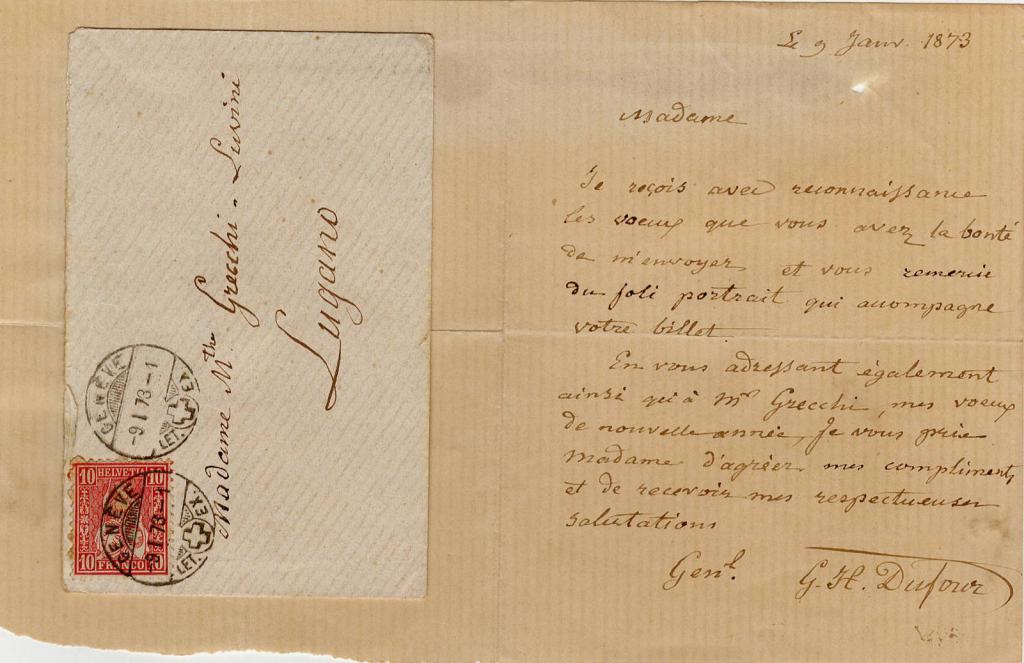 Madame Mthe Grecchi-Luvini
Lugano
GENÈVE
-9 I 73-1
LET. EX
10 HELVETIA 10
10 FRANCO 10
GENÈVE
-9 I 73-1
LET. EX
Le 9 Janv. 1873
Madame
Je reçois avec reconnaissance
les voeux que vous avez la bonté
de m'envoyer et vous remercie
du joli portrait qui accompagne
votre billet.
En vous adressant également
ainsi qu'à Mr Grecchi, mes voeux
de nouvelle année, je vous prie
Madame d'agréer mes compliments
et de recevoir mes respectueuses
salutations
Genl. G. H. Dufour